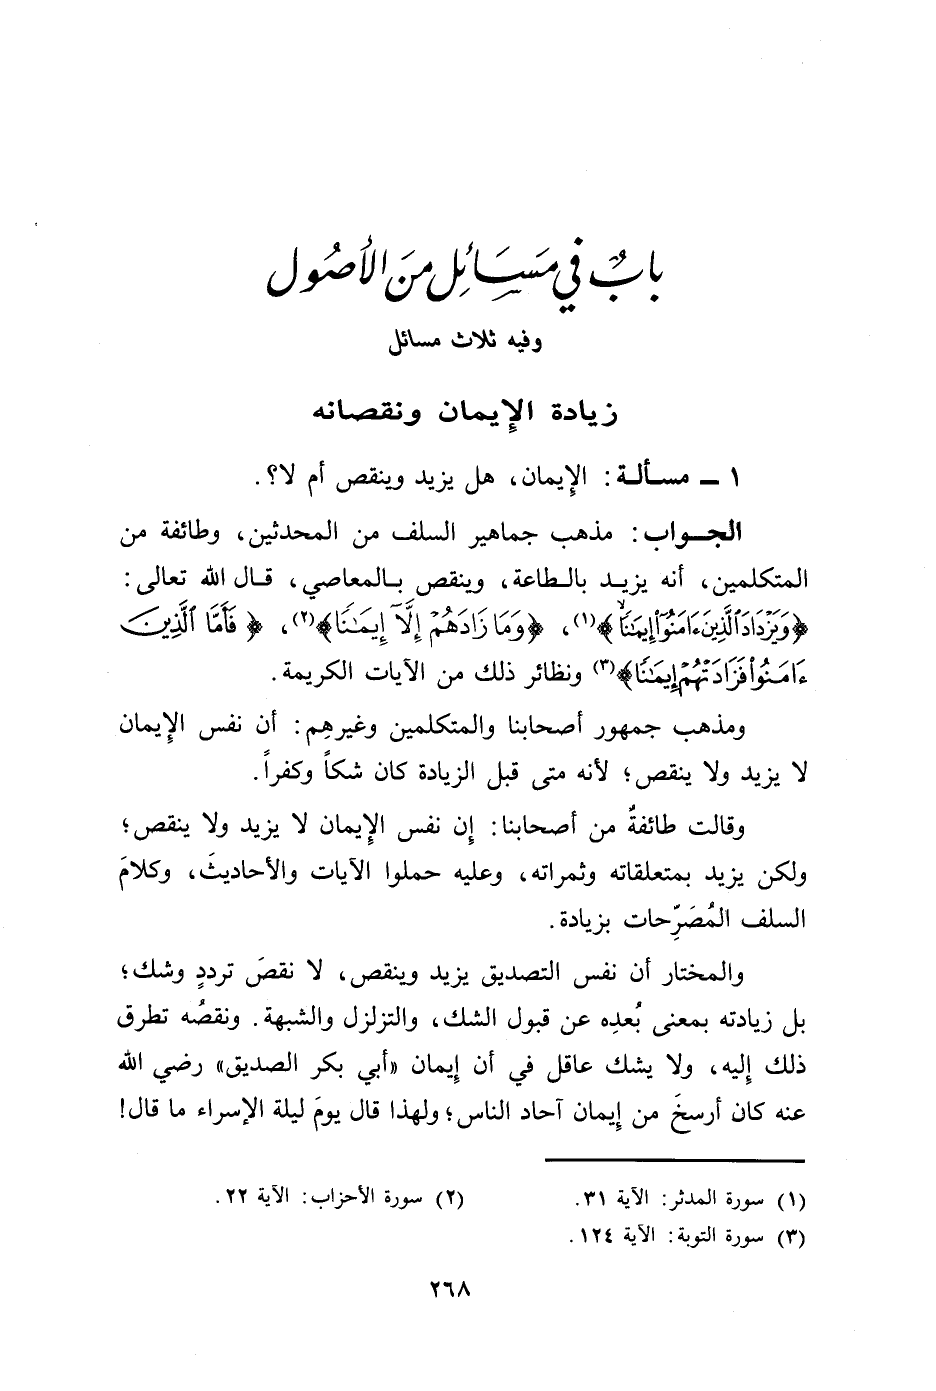 بابٌ في مَسَائِل مِنَ الأصُول
وفيه ثلاث مسائل
زيادة الإيمان ونقصانه
١ ـ مسألة: الإيمان، هل يزيد وينقص أم لا؟.
الجواب: مذهب جماهير السلف من المحدثين، وطائفة من
المتكلمين، أنه يزيد بالطاعة، وينقص بالمعاصي، قال الله تعالى:
﴿وَيَزْدَادَ ٱلَّذِينَ ءَامَنُوٓا۟ إِيمَٰنًا﴾(١)، ﴿وَمَا زَادَهُمْ إِلَّآ إِيمَٰنًا﴾(٢)، ﴿فَأَمَّا ٱلَّذِينَ
ءَامَنُوا۟ فَزَادَتْهُمْ إِيمَٰنًا﴾(٣) ونظائر ذلك من الآيات الكريمة.
ومذهب جمهور أصحابنا والمتكلمين وغيرهِم: أن نفس الإيمان
لا يزيد ولا ينقص؛ لأنه متى قبل الزيادة كان شكاً وكفراً.
وقالت طائفةٌ من أصحابنا: إن نفس الإيمان لا يزيد ولا ينقص؛
ولكن يزيد بمتعلقاته وثمراته، وعليه حملوا الآيات والأحاديثَ، وكلامَ
السلف المُصَرِّحات بزيادة.
والمختار أن نفس التصديق يزيد وينقص، لا نقصَ ترددٍ وشك؛
بل زيادته بمعنى بُعدِه عن قبول الشك، والتزلزل والشبهة. ونقصُه تطرق
ذلك إليه، ولا يشك عاقل في أن إيمان «أبي بكر الصديق» رضي الله
عنه كان أرسخَ من إيمان آحاد الناس؛ ولهذا قال يومَ ليلة الإسراء ما قال!
(١) سورة المدثر: الآية ٣١. (٢) سورة الأحزاب: الآية ٢٢.
(٣) سورة التوبة: الآية ١٢٤.
٢٦٨